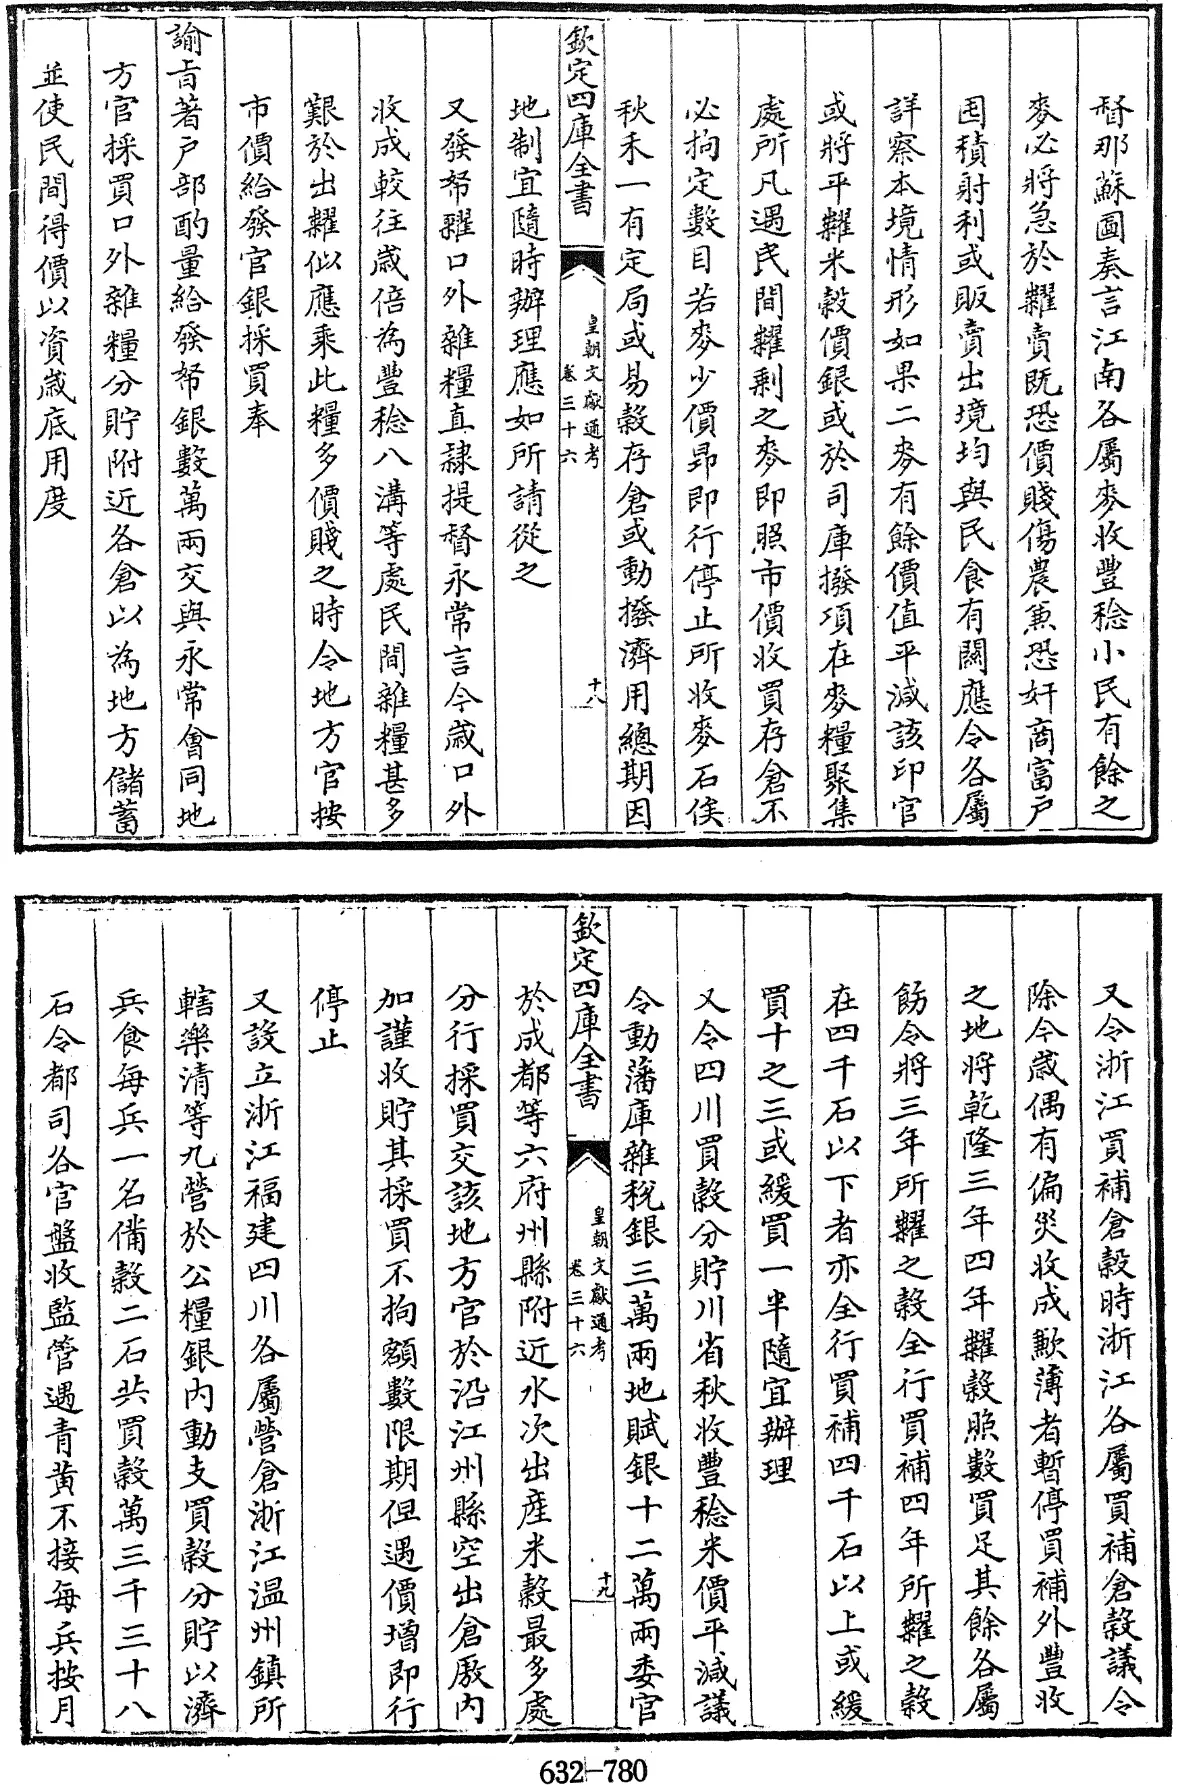 督那蘇圖奏言江南各屬麥收豐稔小民有餘之
麥必將急於糶賣既恐價賤傷農兼恐奸商富户
囤積射利或販賣出境均與民食有關應令各屬
詳察本境情形如果二麥有餘價值平減該印官
或將平糶米穀價銀或於司庫撥項在麥糧聚集
處所凡遇民間糶剩之麥即照市價收買存倉不
必拘定數目若麥少價昂即行停止所收麥石俟
秋禾一有定局或易穀存倉或動撥濟用總期因
欽定四庫全書
皇朝文獻通考
卷三十六
十八
地制宜隨時辦理應如所請從之
又發帑糴口外雜糧直隸提督永常言今歲口外
收成較往歲倍為豐稔八溝等處民間雜糧甚多
艱於出糶似應乘此糧多價賤之時令地方官按
市價給發官銀採買奉
諭旨著户部酌量給發帑銀數萬兩交與永常會同地
方官採買口外雜糧分貯附近各倉以為地方儲蓄
並使民間得價以資歲底用度
又令浙江買補倉穀時浙江各屬買補倉穀議令
除今歲偶有偏災收成歉薄者暫停買補外豐收
之地將乾隆三年四年糶穀照數買足其餘各屬
飭令將三年所糶之穀全行買補四年所糶之穀
在四千石以下者亦全行買補四千石以上或緩
買十之三或緩買一半隨宜辦理
又令四川買穀分貯川省秋收豐稔米價平減議
令動藩庫雜稅銀三萬兩地賦銀十二萬兩委官
欽定四庫全書
皇朝文獻通考
卷三十六
十九
於成都等六府州縣附近水次出産米穀最多處
分行採買交該地方官於沿江州縣空出倉厫内
加謹收貯其採買不拘額數限期但遇價增即行
停止
又設立浙江福建四川各屬營倉浙江温州鎮所
轄樂清等九營於公糧銀内動支買穀分貯以濟
兵食每兵一名備穀二石共買穀萬三千三十八
石令都司各官盤收監管遇青黄不接每兵按月
632-780